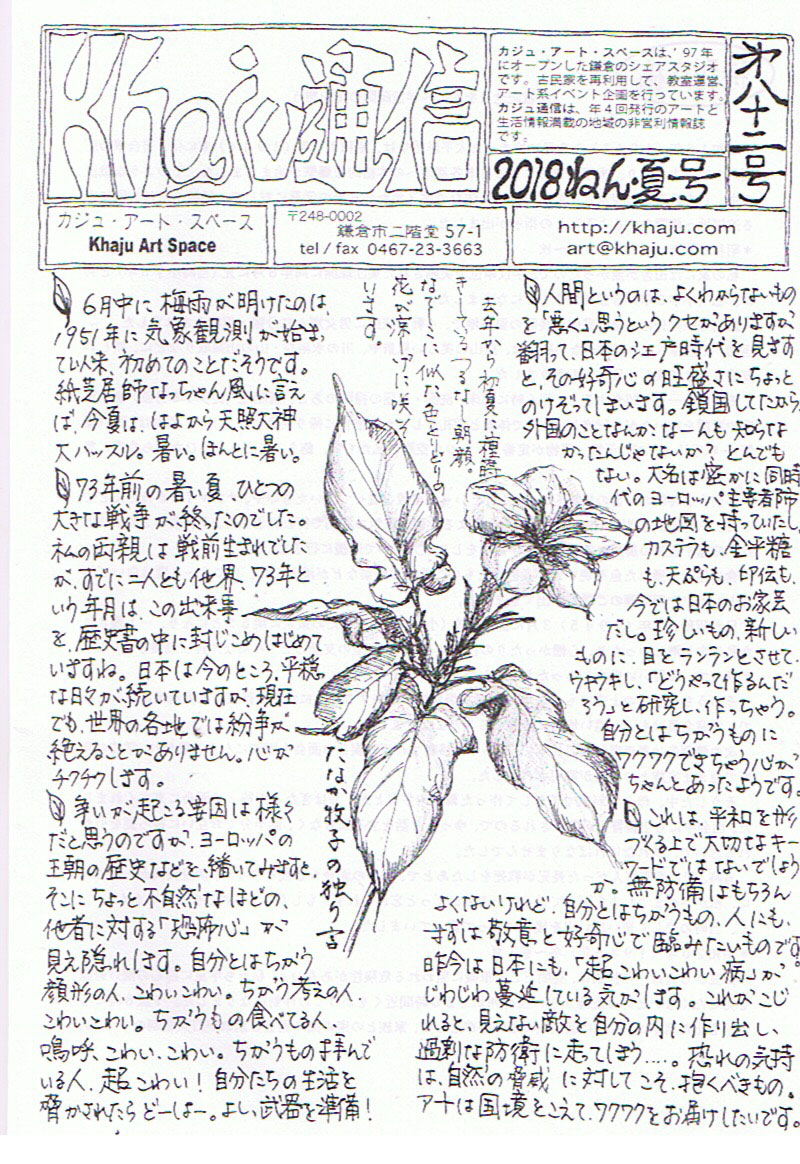 Khaju通信
カジュ・アート・スペースは、'97年
にオープンした鎌倉のシェアスタジオ
です。古民家を再利用して、教室運営、
アート系イベント企画を行っています。
カジュ通信は、年4回発行のアートと
生活情報満載の地域の非営利情報誌
です。
2018ねん・夏号
第八十二号
カジュ・アート・スペース
Khaju Art Space
〒248-0002
鎌倉市二階堂 57-1
tel / fax 0467-23-3663
http://khaju.com
art@khaju.com
6月中に梅雨が明けたのは
1951年に気象観測が始まっ
て以来、初めてのことだそうです。
紙芝居師なっちゃん風に言え
ば、今夏は、はよから天照大神
大ハッスル。暑い。ほんとに暑い。
73年前の暑い夏、ひとつの
大きな戦争が終ったのでした。
私の両親は戦前生まれでした
が、すでに二人とも他界、73年と
いう年月は、この出来事
を、歴史書の中に封じこめはじめて
いますね。日本は今のところ、平穏
な日々が続いていますが、現在
でも、世界の各地では紛争が
絶えることがありません。心が
チクチクします。
争いが起こる要因は様々
だと思うのですが、ヨーロッパの
王朝の歴史などを繙いてみますと、
そこにちょっと不自然なほどの、
他者に対する「恐怖心」が
見え隠れします。自分とはちがう
顔形の人、こわいこわい。ちがう考えの人
こわいこわい。ちがうもの食べてる人、
嗚呼、こわい、こわい。ちがうもの拝んで
いる人、超こわい!自分たちの生活を
脅かされたらどーしよー。よし、武器を準備!
去年から初夏の種蒔
きしてるつるなし朝顔。
なでしこに似た色とりどりの
花が涼しげに咲いて
います。
たなか牧子の独り言
人間というのは、よくわからないもの
を「悪く」思うというクセがありますが、
翻って、日本のシエ戸時代を見ます
と、その好奇心の旺盛さにちょっと
のけぞってしまいます。鎖国してたから
外国のことなんかなーんも知らな
かったんじゃないか?とんでも
ない。大名は密かに同時
代のヨーロッパ主要都市
の地図を持っていたし、
カステラも、金平糖
も、天ぷらも、印伝も、
今では日本のお家芸
だし。珍しいもの、新しい
ものに、目をランランとさせて、
ウキウキし、「どうやって作るんだ
ろう」と研究し、作っちゃう。
自分とはちがうものに
ワクワクできちゃう心が
ちゃんとあったようです。
これは、平和を形
づくる上で大切なキー
ワードではないでしょう
か。無防備はもちろん
よくないけれど、自分とはちがうもの、人にも、
まずは敬意と好奇心で臨みたいものです。
昨今は日本にも、「超こわいこわい病」が
じわじわ蔓延している気がします。これがこじ
れると、見えない敵を自分の内に作り出し、
過剰な防衛に走ってしまう....。恐れの気持
は、自然の脅威に対してこそ、抱くべきもの。
アートは国境をこえて、ワクワクをお届けしたいです。